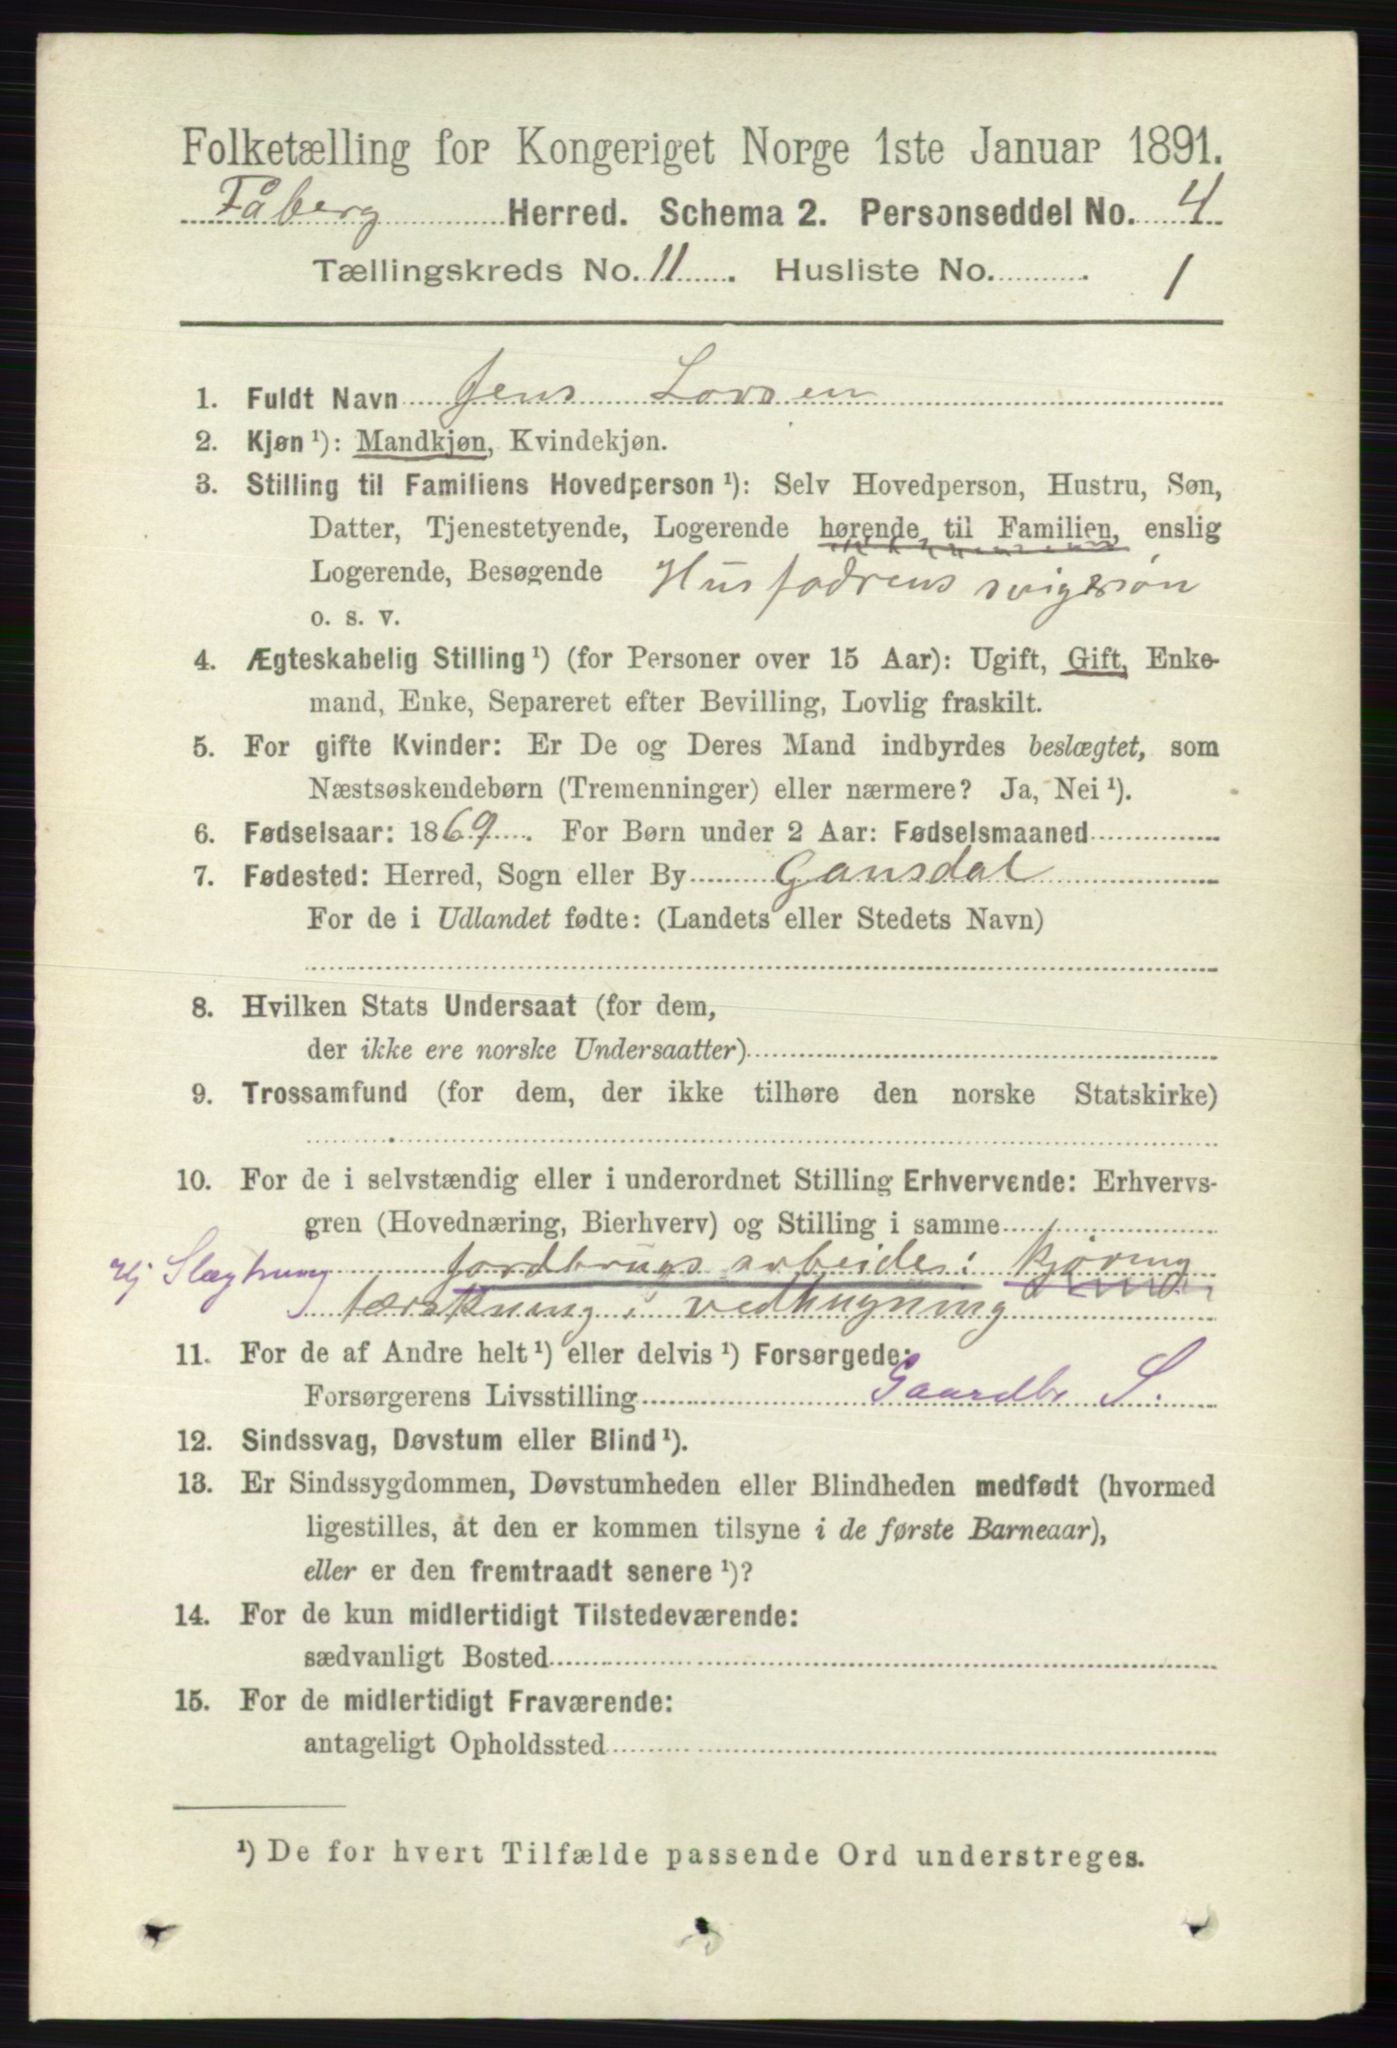 Folketælling for Kongeriget Norge 1ste Januar 1891.
Fåberg Herred. Schema 2. Personseddel No. 4
Tællingskreds No. 11. Husliste No. 1
1. Fuldt Navn Jens Larsen
2. Kjøn ¹): Mandkjøn, Kvindekjøn.
3. Stilling til Familiens Hovedperson ¹): Selv Hovedperson, Hustru, Søn,
Datter, Tjenestetyende, Logerende hørende til Familien, enslig
Logerende, Besøgende Husfadrens svigersön
o. s. v.
4. Ægteskabelig Stilling ¹) (for Personer over 15 Aar): Ugift, Gift, Enke-
mand, Enke, Separeret efter Bevilling, Lovlig fraskilt.
5. For gifte Kvinder: Er De og Deres Mand indbyrdes beslægtet, som
Næstsøskendebørn (Tremenninger) eller nærmere? Ja, Nei ¹).
6. Fødselsaar: 1869. For Børn under 2 Aar: Fødselsmaaned
7. Fødested: Herred, Sogn eller By Gausdal
For de i Udlandet fødte: (Landets eller Stedets Navn)
8. Hvilken Stats Undersaat (for dem,
der ikke ere norske Undersaatter)
9. Trossamfund (for dem, der ikke tilhøre den norske Statskirke)
10. For de i selvstændig eller i underordnet Stilling Erhvervende: Erhvervs-
gren (Hovednæring, Bierhverv) og Stilling i samme
Slægtning jordbrugsarbeide: kjøring
tærskning i vedhugning
11. For de af Andre helt ¹) eller delvis ¹) Forsørgede:
Forsørgerens Livsstilling Gaardbr S.
12. Sindssvag, Døvstum eller Blind ¹).
13. Er Sindssygdommen, Døvstumheden eller Blindheden medfødt (hvormed
ligestilles, at den er kommen tilsyne i de første Barneaar),
eller er den fremtraadt senere ¹)?
14. For de kun midlertidigt Tilstedeværende:
sædvanligt Bosted
15. For de midlertidigt Fraværende:
antageligt Opholdssted
¹) De for hvert Tilfælde passende Ord understreges.